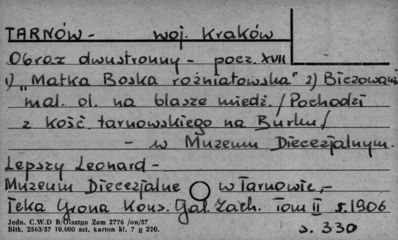 TARNÓW - woj. Kraków
Obraz dwustronny - pocz. XVII
1) "Matka Boska rożniatowska" 2) Biczowani
mal. ol. na blasze miedź. /Pochodzi
z kość. tarnowskiego na Burku/
- w Muzeum Diecezjalnym.
Lepszy Leonard -
Muzeum Diecezjalne w Tarnowie, -
Teka Grona Kons. Gal. Zach. Tom II r. 1906
s. 330
Jedn. C.W.D B/Olsztyn Zam 2776 /on/57
Bltk. 2563/57 10.000 szt, karton kl. 7 g 220.